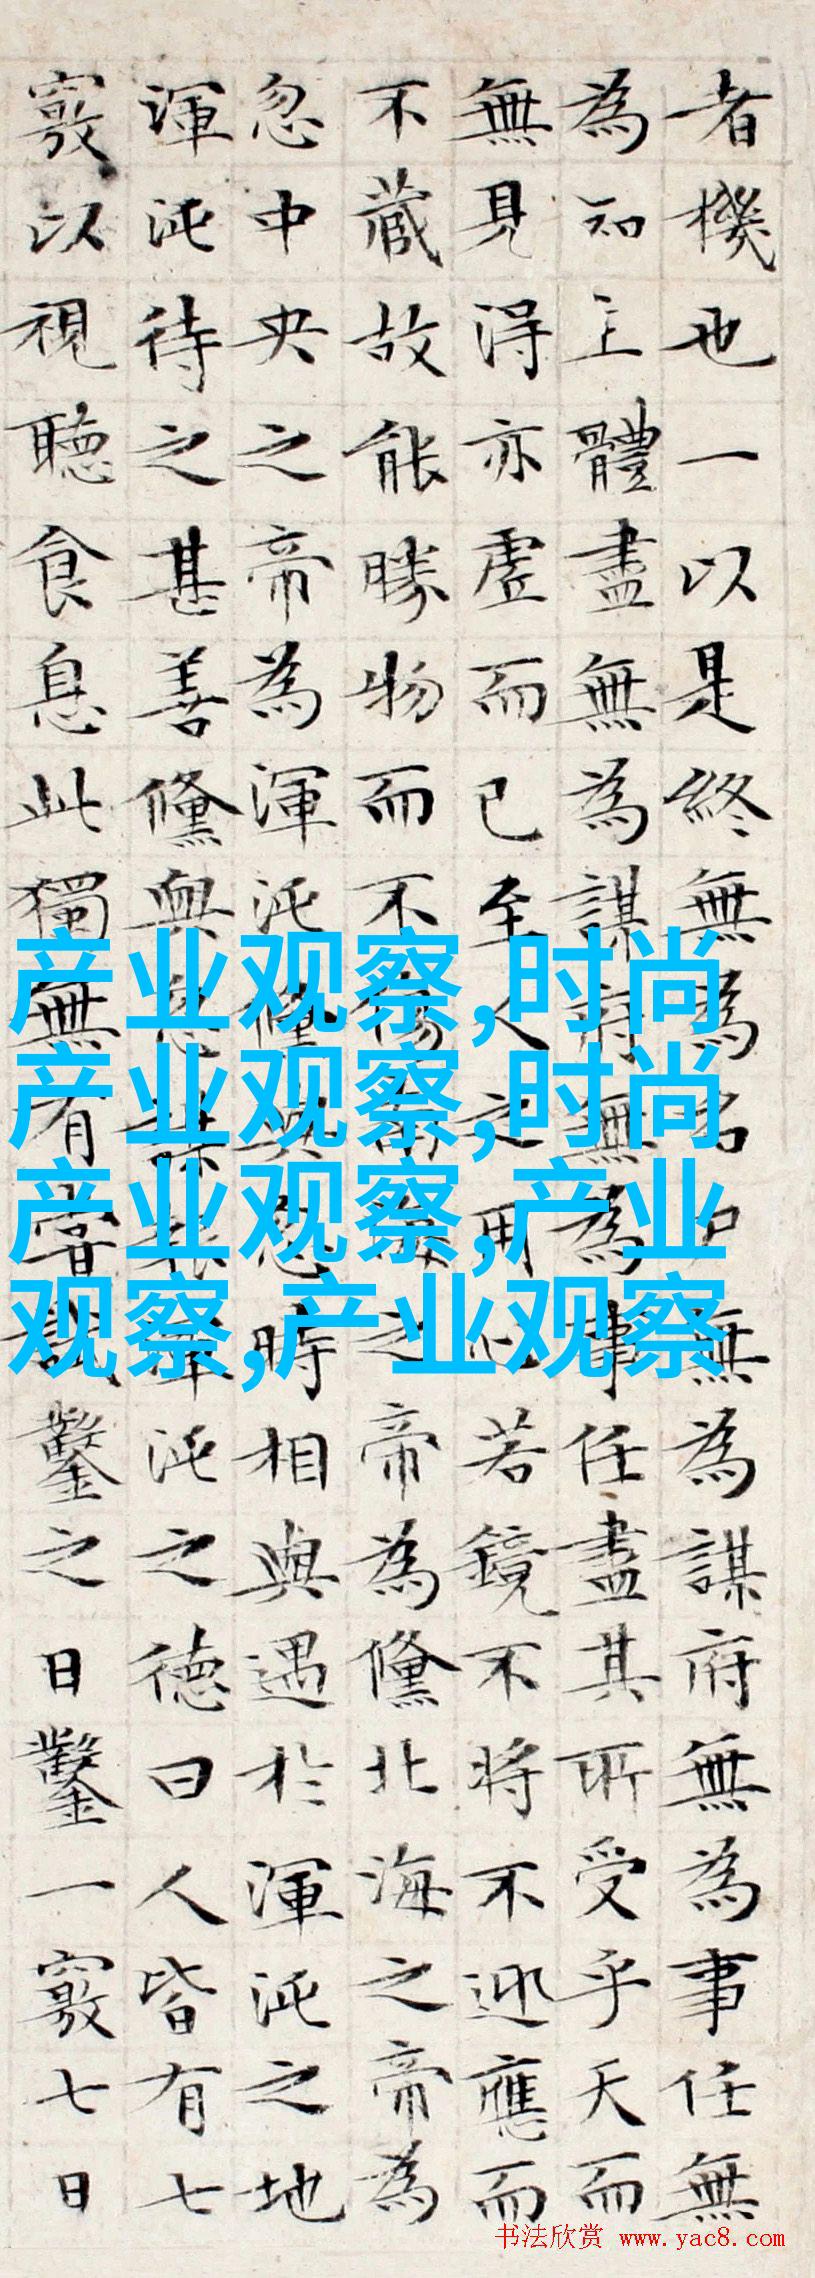 者機也一以是終無為名尸無為謀府無為事任無
為知主體盡無為謀府無為事任盡其所受乎天而
無見得亦虛而已至人之用心若鏡不將不迎應而
不藏故能勝物而不傷南海之帝為儵北海之帝為
忽中央之帝為渾沌儵與忽時相與遇於渾沌之地
渾沌待之甚善儵與忽謀報渾沌之德曰人皆有七
竅以視聽食息此獨無有嘗試鑿之日鑿一竅七日
产业观察,时尚
产业观察,时尚
产业观察,产业
观察,产业观察
书法欣赏 www.yac8.com